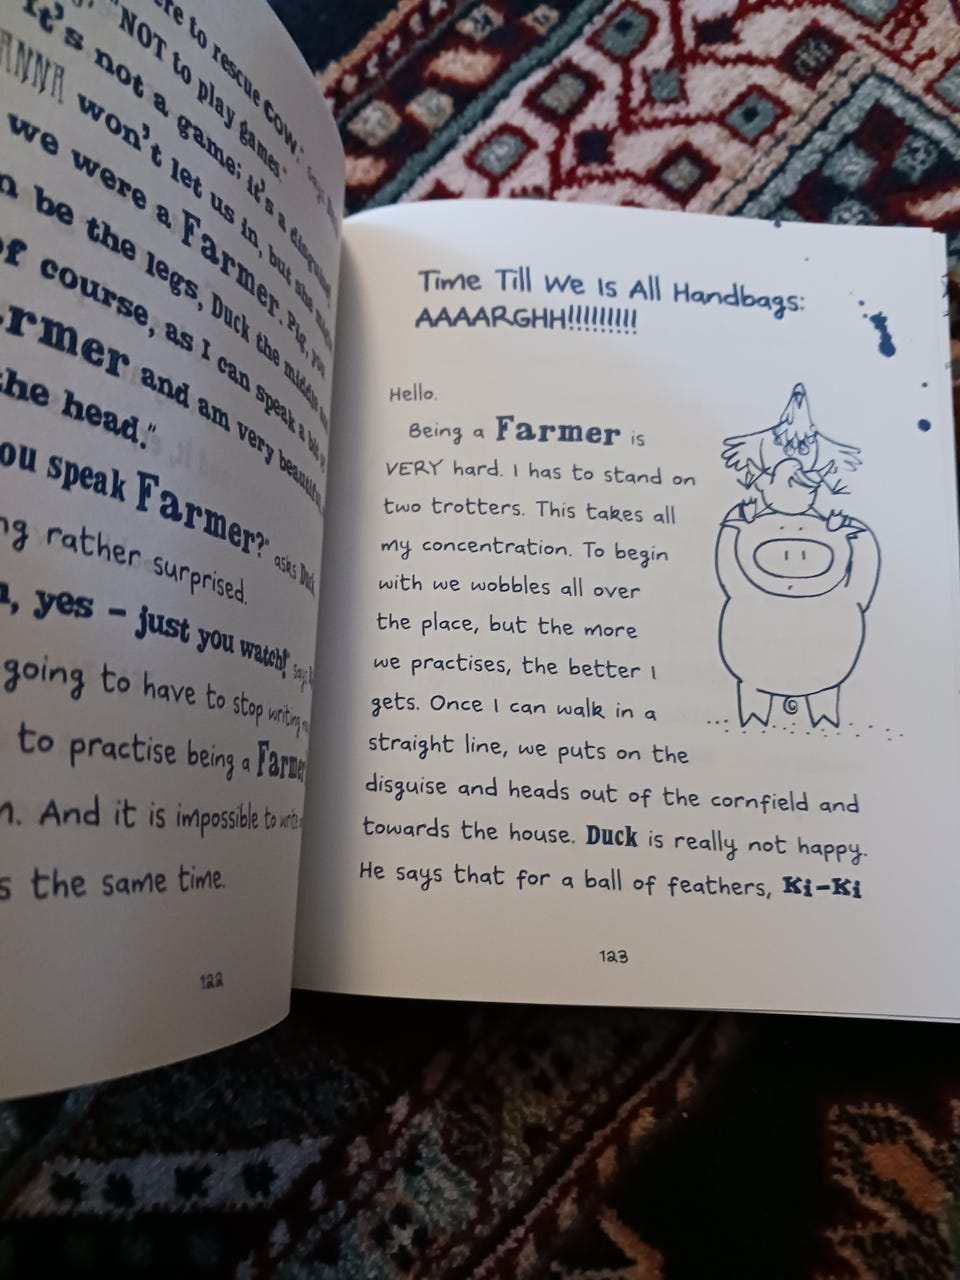 ere to rescue Cow."
"NOT to play games."
It's not a game; it's a disguise
ANNA won't let us in, but she might
we were a Farmer. Pig, you
n be the legs, Duck the middle and
of course, as I can speak a bit of
armer and am very beautiful,
the head."
ou speak Farmer?" asks Duck
ng rather surprised.
, yes – just you watch!" says
going to have to stop writing
to practise being a Farmer
n. And it is impossible to write
s the same time.
122
Time Till We Is All Handbags:
AAAARGHH!!!!!!!!!
Hello.
Being a Farmer is
VERY hard. I has to stand on
two trotters. This takes all
my concentration. To begin
with we wobbles all over
the place, but the more
we practises, the better I
gets. Once I can walk in a
straight line, we puts on the
disguise and heads out of the cornfield and
towards the house. Duck is really not happy.
He says that for a ball of feathers, Ki-Ki
123